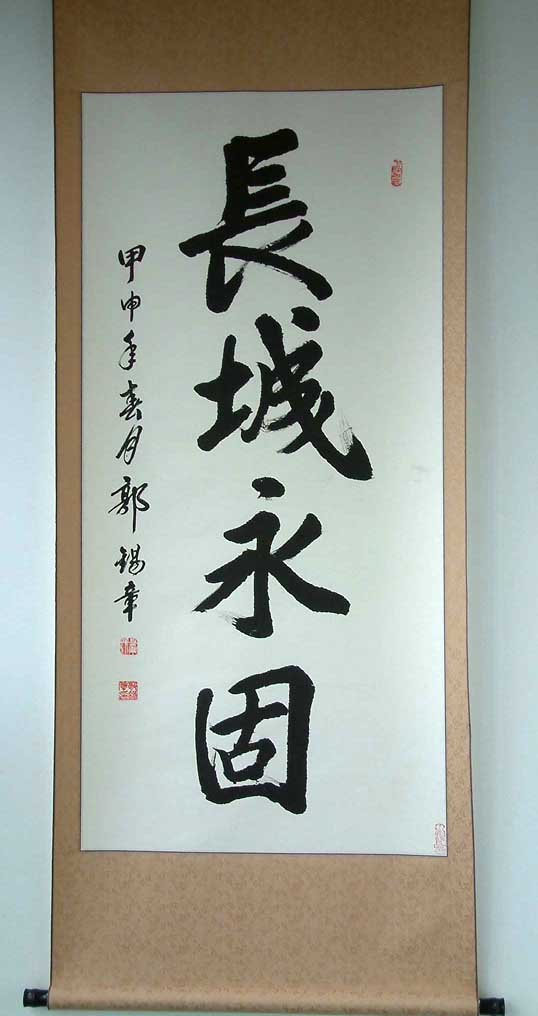 長城永固
甲申年春月郭錫章